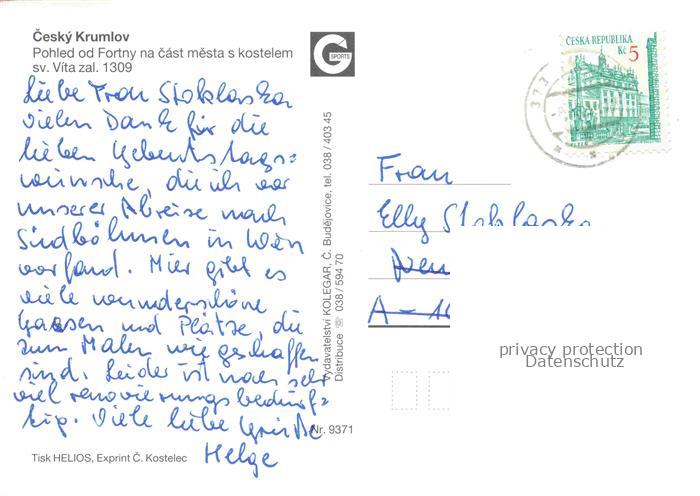 Český Krumlov
Pohled od Fortny na část města s kostelem
sv. Víta zal. 1309
Liebe Frau Stoklaska
vielen Dank für die
lieben Geburtstags=
wünsche, die ich vor
unserer Abreise nach
Südböhmen in Wien
vorfand. Hier gibt es
viele wunderschöne
Gassen und Plätze, die
zum Malen wie geschaffen
sind. Leider ist noch sehr
viel renovierungsbedürf=
tig. Viele liebe Grüße
Helge
Tisk HELIOS, Exprint Č. Kostelec
G
SPORTS
Vydavatelství KOLEGAR, Č. Budějovice, tel. 038 / 403 45
Distribuce ☏ 038 / 594 70
Nr. 9371
ČESKÁ REPUBLIKA
Kč 5
PLZEŇ
373
Frau
Elly Stoklaska
A-
privacy protection
Datenschutz